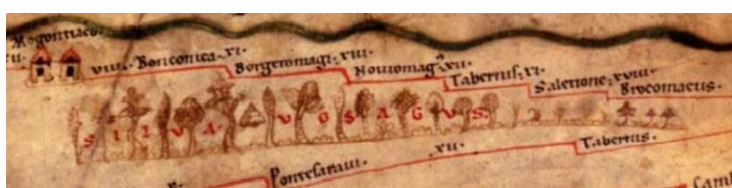 Mogontiaco.
XII.
VIIII. Bonconica. XI.
Borgetomagi. XIII.
Noviomag. XII.
Tabernis. XI.
Saletione. XVIII.
Brocomacus.
SILVA VOSAGVS.
Pontesaravi.
XII.
Tabernis.